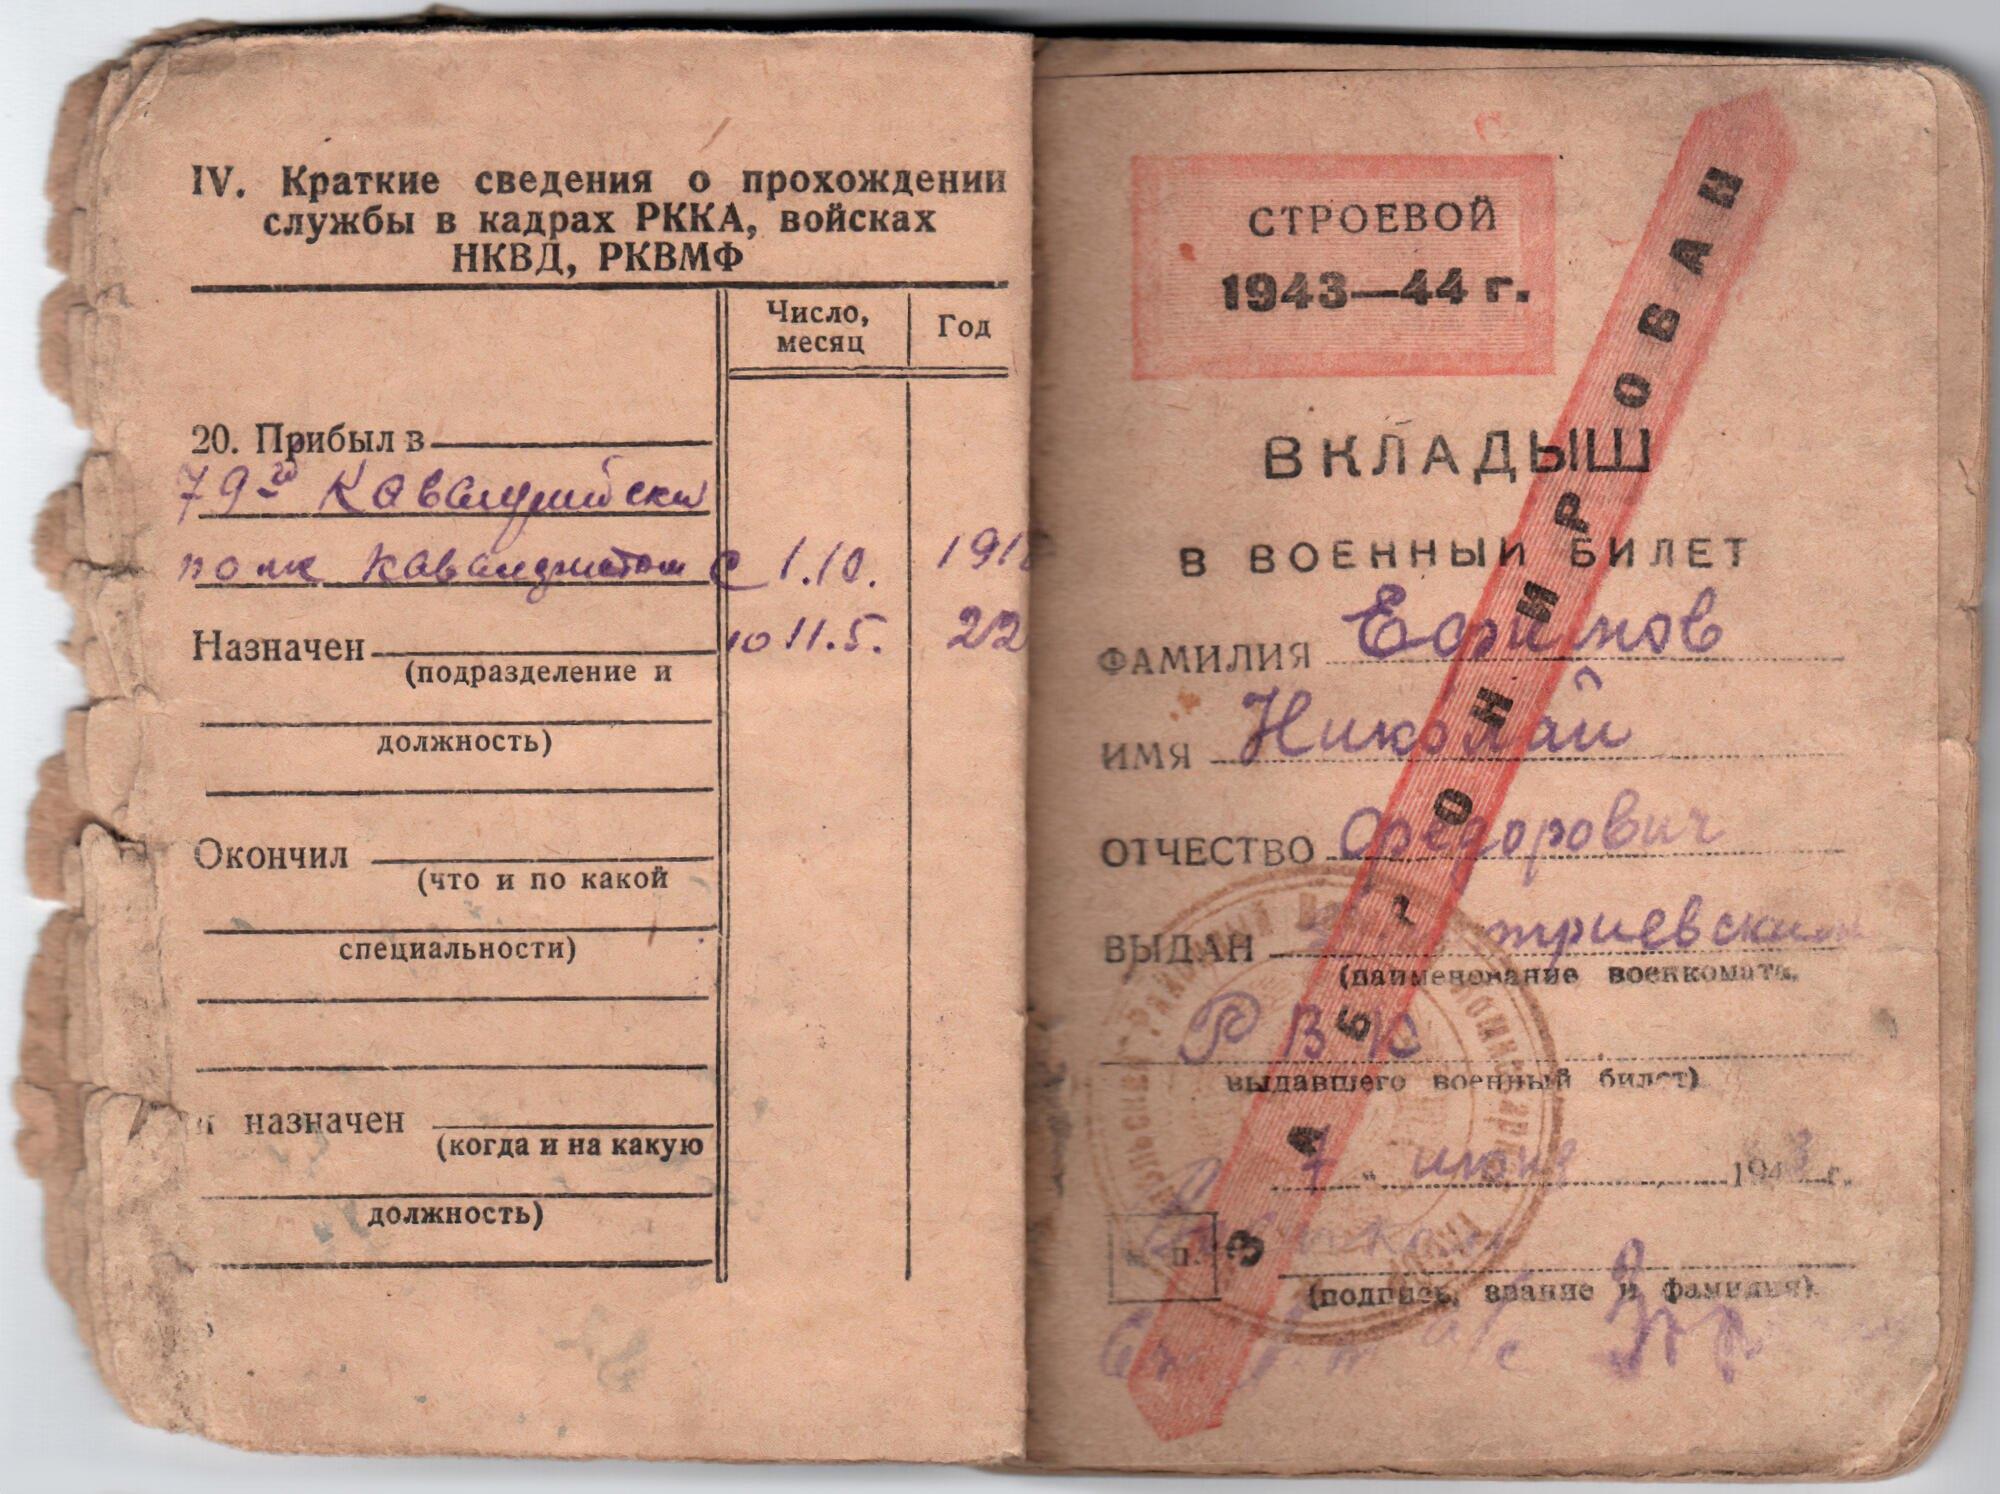 IV. Краткие сведения о прохождении
службы в кадрах РККА, войсках
НКВД, РКВМФ
Число,
месяц
Год
20. Прибыл в
79й Кавалерийски
полк кавалеристом с 1.10. 191
Назначен по 11.5. 22
(подразделение и
должность)
Окончил
(что и по какой
специальности)
и назначен
(когда и на какую
должность)
СТРОЕВОЙ
1943—44 г.
ЗАБРОНИРОВАН
ВКЛАДЫШ
В ВОЕННЫЙ БИЛЕТ
ФАМИЛИЯ Ефимов
ИМЯ Николай
ОТЧЕСТВО Федорович
ВЫДАН триевским
(наименование военкомата,
РВК
выдавшего военный билет)
7 " июня 1943 г.
М. П.
(подпись, звание и фамилия)